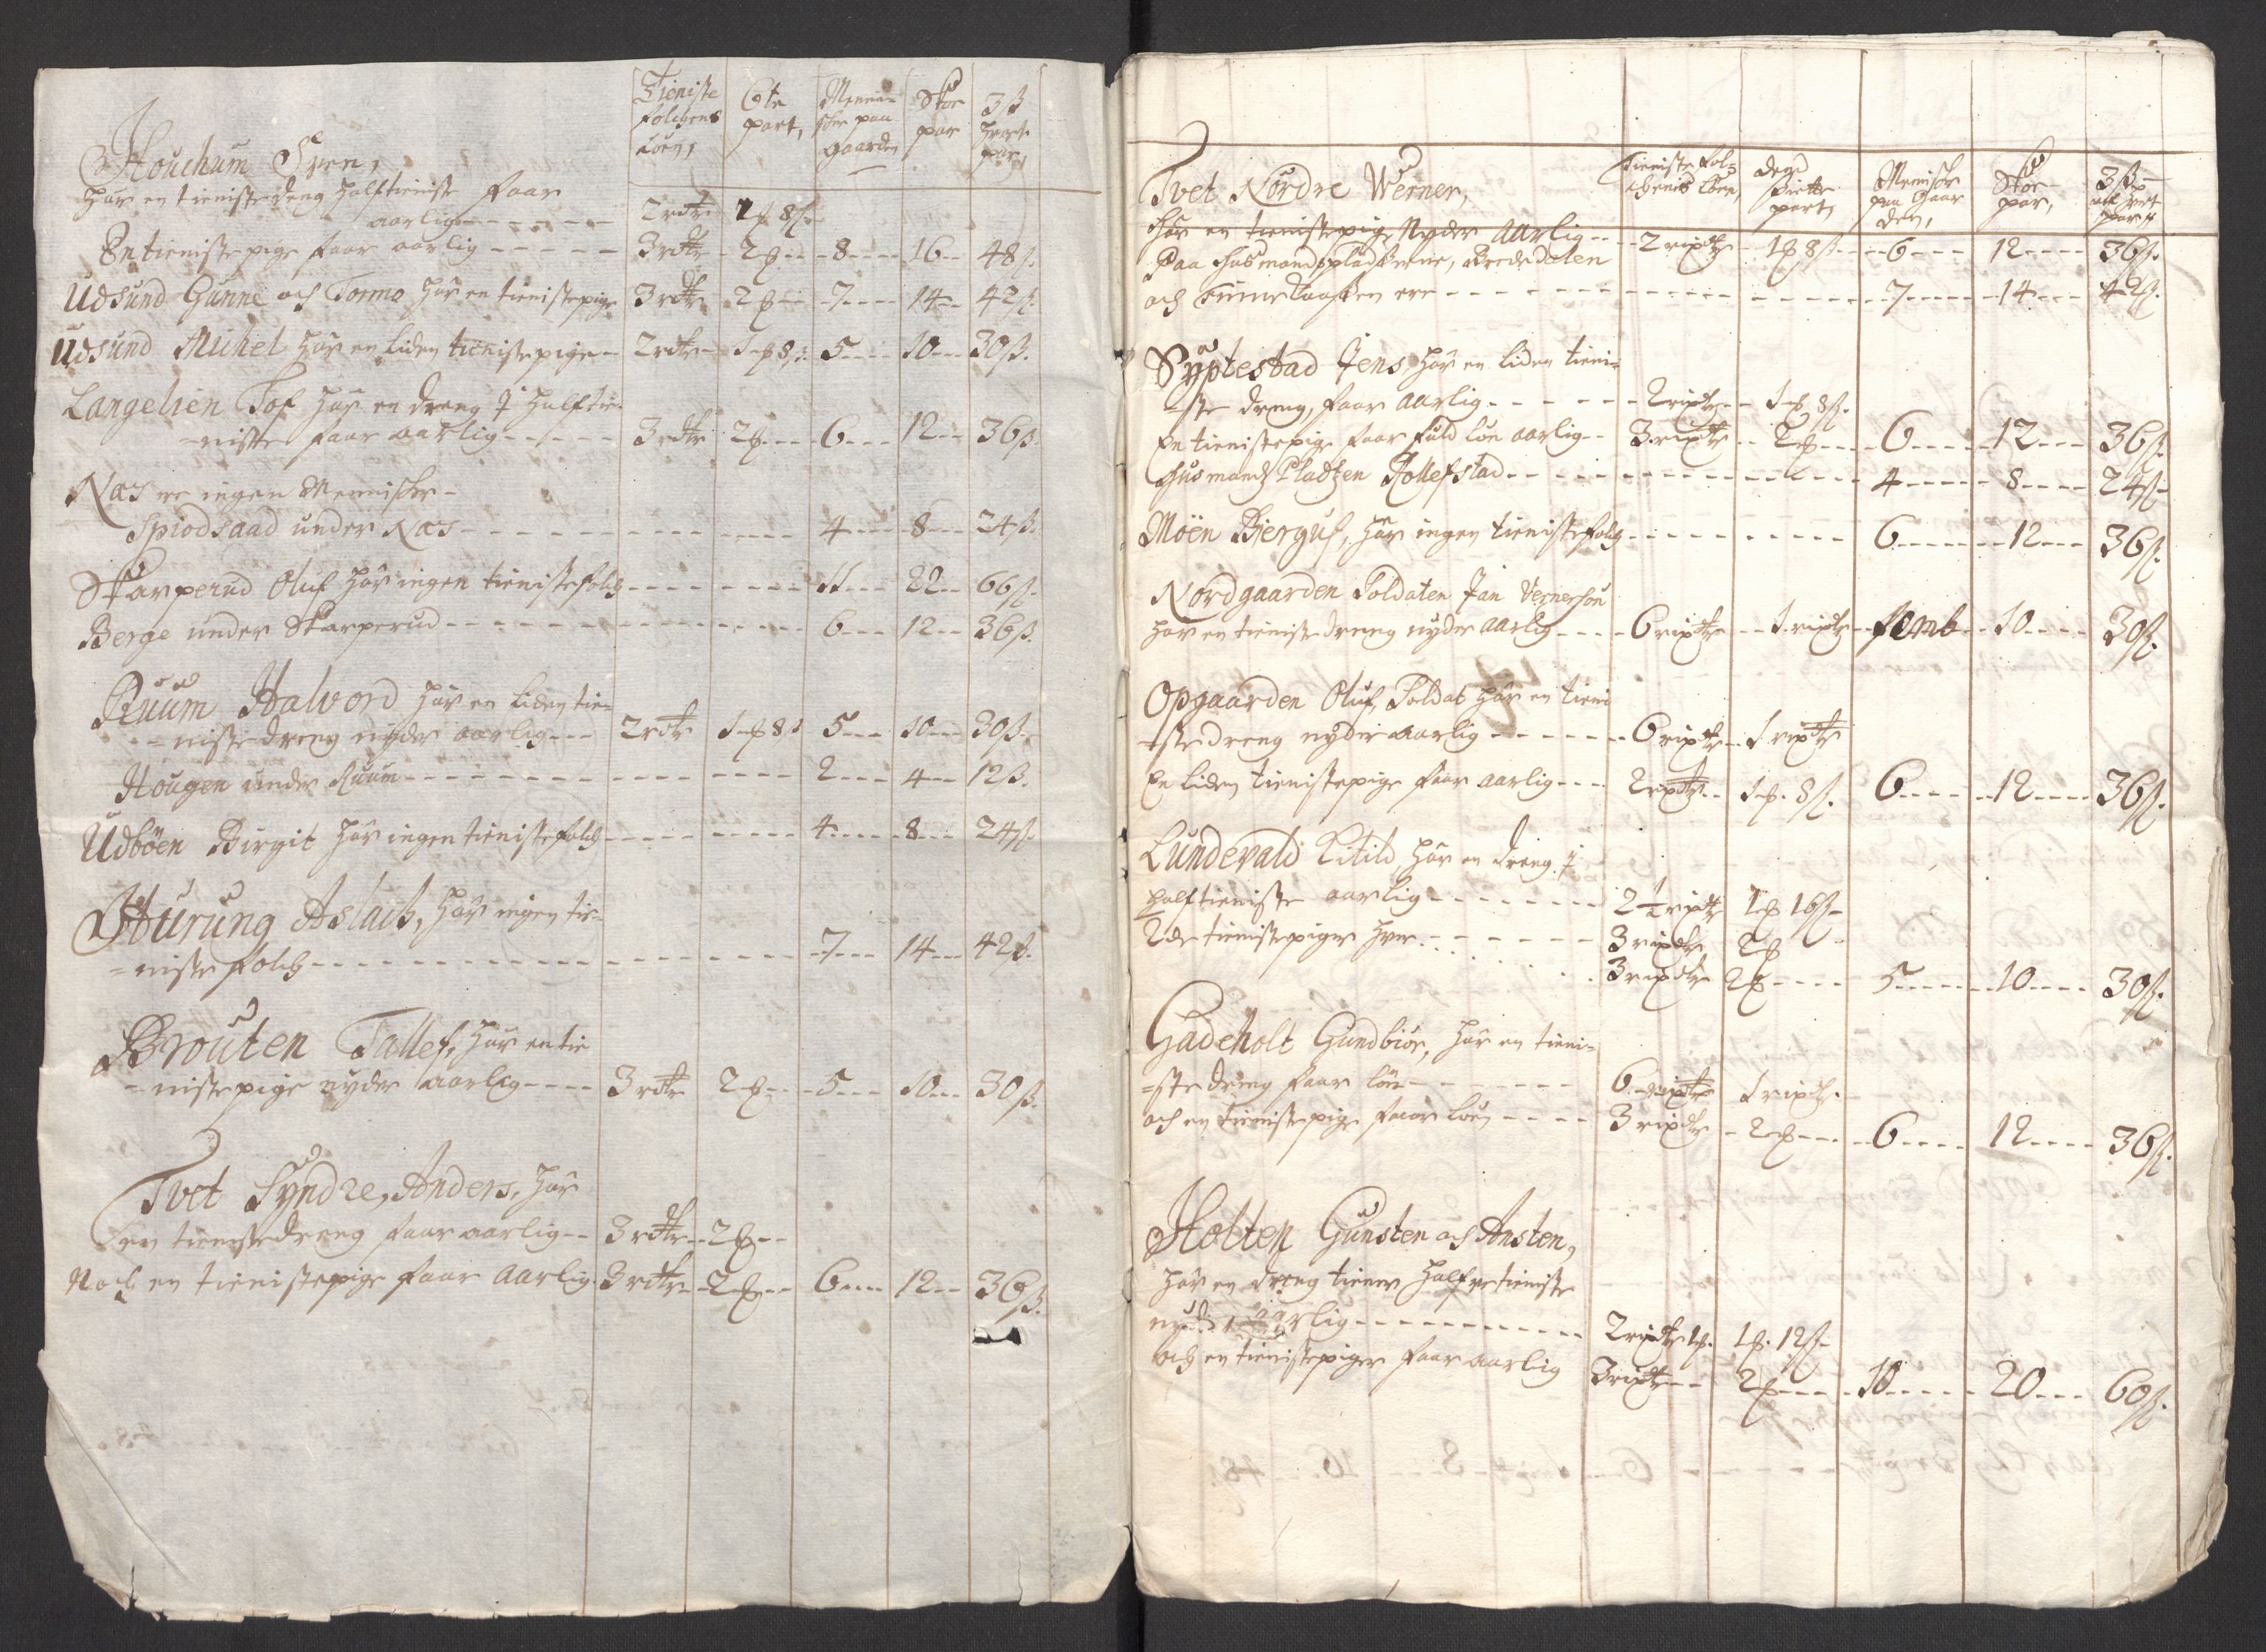 Tieniste 6te Menni= Skoe 3 ß
folchens part, scher paa par hvert
Löen, gaarden par,
Houchum Sven,
har en tieniste dreng halftieniste faar
aarlig - - - - - - 2 rdr 1 8 ß
En tienistepige faar aarlig - - - - 3 rdr - 2 - - 8 - - - 16 - - 48 ß.
Udsund Gunne och Tormo har en tienistepige 3 rdr 2 - - 7 - - - 14 - - 42 ß.
Udsund Michel har en liden tienistepige - 2 rdr - 1 8 ß. 5 - - - 10 - - 30 ß.
Langelien Tof har en dreng i halftie=
=niste faar aarlig - - - - - 3 rdr 2 - - - 6 - - - 12 - - 36 ß.
Næs er ingen Mennischer -
Spiodsaad under Næs - - - - - - - - - - 4 - - - 8 - - - 24 ß.
Skarperud Oluf har ingen tienistefolch - - - - - - 11 - - - 22 - - 66 ß.
Berge under Skarperud - - - - - - - - - - 6 - - - 12 - - 36 ß.
Ruum Halvord har en liden tie=
=niste dreng nyder aarlig - - - 2 rdr 1 8 ß 5 - - - 10 - - 30 ß.
Hougen under Ruum - - - - - - - - - - 2 - - - 4 - - 12 ß.
Udböen Birgit har ingen tienistefolch - - - - - - 4 - - - 8 - - - 24 ß.
Hurung Aslach, har ingen tie=
=niste folch - - - - - - - - - - 7 - - - 14 - - 42 ß.
Brouten Tallef, har en tie
=nistepige nyder aarlig - - - - 3 rdr 2 - - 5 - - - 10 - - - 30 ß.
Tvet Syndre, Anders, har
en tienistedreng faar aarlig - - 3 rdr - - 2 - -
Noch en tienistepige faar aarlig 3 rdr - 2 - - 6 - - - 12 - - 36 ß.
Tvet Nordre Werner, Tieniste fol= Mennisker Skoe 3 ß
chenes Löen, Siette paa Gaar par, hvert
part, den, par
har en tienistepige Nyder aarlig - - - 2 ripdr 1 8 ß - - 6 - - - 12 - - - 36 ß.
Paa husmandspladserne, Brededalen
och ere - - - - - - - - - - 7 - - - 14 - - - 42 ß.
Syptestad Jens, har en liden tieni=
=ste dreng, faar aarlig - - - - - - 2 ripdr - - 1 8 ß.
En tienistepige faar fuld lön aarlig - - 3 ripdr - - 2 - - - 6 - - - 12 - - - 36 ß.
husmands Pladsen Rollefstad - - - - - - - - - 4 - - - 8 - - - 24 ß
Möen Bierguf, har ingen tienistefolch - - - - - - 6 - - - 12 - - - 36 ß.
Nordgaarden Soldaten Jan Vernersøn
har en tieniste dreng nyder aarlig - - - 6 ripdr - - 1 ripdr - femb - - 10 - - - 30 ß.
Opgaarden Oluf, Soldat har en tieni
=stedreng nyder aarlig - - - - - - 6 ripdr - 1 ripdr
En liden tienistepige faar aarlig - - - 2 ripdr - - 1 8 ß. 6 - - - 12 - - - 36 ß.
Lundevald Kitild, har en dreng i
halftieniste aarlig - - - - - - - 2½ ripdr 1 16 ß -
2de tienistepiger hver - - - - - - 3 ripdr 2
3 ripdr 2 - - - 5 - - - 10 - - - 30 ß.
Gadeholt Gundbiör, har en tieni=
=ste dreng faar lön - - - - - - 6 ripdr 1 ripdr.
och en tienistepige faar lön - - - - 3 ripdr - 2 - - - 6 - - - 12 - - - 36 ß.
Holten Gunsten och Ansten,
har en dreng tiener halfve tieniste
nyder aarlig - - - - - - - - - 2 ripdr 1 . 1 . 12 ß -
och en tienistepiger faar aarlig 3 ripdr - - 2 - - - 10 - - - 20 - - - 60 ß.